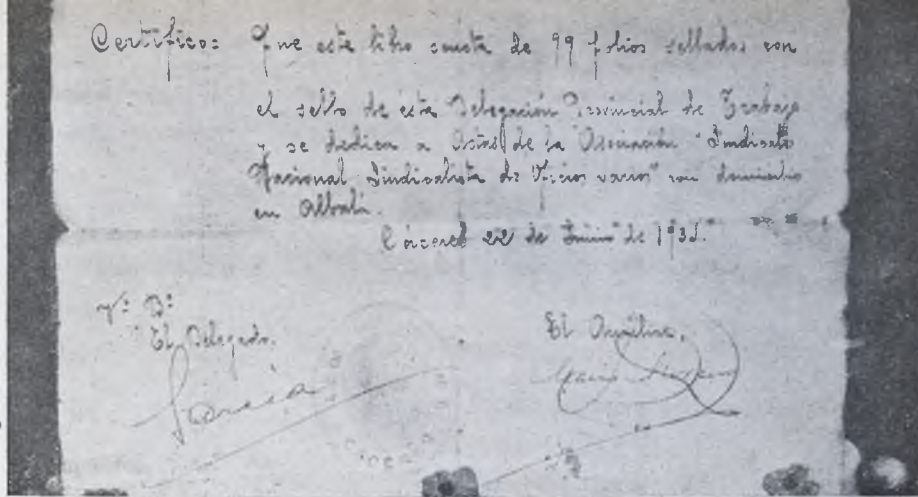 Certifico: Que este libro consta de 99 folios sellados con
el sello de esta Delegación Provincial de Trabajo
y se dedica a Actas de la Asociación "Sindicato
Nacional Sindicalista de Oficios varios" con domicilio
en Albalá.
Cáceres 22 de Junio de
Vº Bº
El Delegado.
El Auxiliar,
García